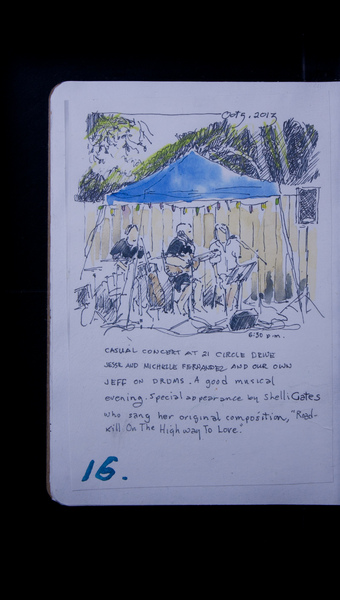 Oct 5, 2013
6:30 p.m.
CASUAL CONCERT AT 21 CIRCLE DRIVE
JESSE AND MICHELLE FERNANDEZ AND OUR OWN
JEFF ON DRUMS. A good musical
evening. Special appearance by Shelli Gates
who sang her original composition, "Road-
kill On The Highway To Love."
16.